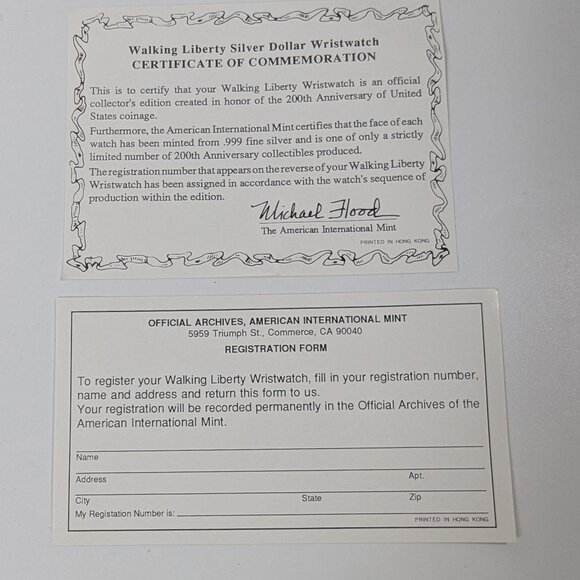 Walking Liberty Silver Dollar Wristwatch
CERTIFICATE OF COMMEMORATION
This is to certify that your Walking Liberty Wristwatch is an official
collector's edition created in honor of the 200th Anniversary of United
States coinage.
Furthermore, the American International Mint certifies that the face of each
watch has been minted from .999 fine silver and is one of only a strictly
limited number of 200th Anniversary collectibles produced.
The registration number that appears on the reverse of your Walking Liberty
Wristwatch has been assigned in accordance with the watch's sequence of
production within the edition.
Michael Flood
The American International Mint
PRINTED IN HONG KONG
OFFICIAL ARCHIVES, AMERICAN INTERNATIONAL MINT
5959 Triumph St., Commerce, CA 90040
REGISTRATION FORM
To register your Walking Liberty Wristwatch, fill in your registration number,
name and address and return this form to us.
Your registration will be recorded permanently in the Official Archives of the
American International Mint.
Name
Address Apt.
City State Zip
My Registation Number is:
PRINTED IN HONG KONG